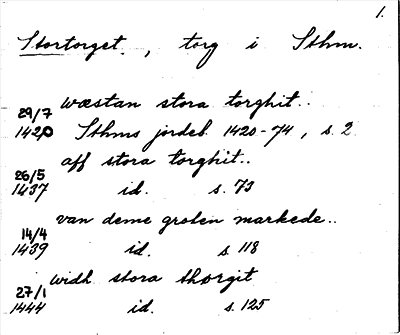 1.
Stortorget. , torg i Sthm.
29/7 wæstan stora torghit..
1420 Sthms jordeb. 1420-74, s. 2
aff stora torghit..
26/5
1437 id. s. 73
van deme groten markede..
14/4
1439 id. s. 118
widh stora thorgit
27/1
1444 id. s. 125